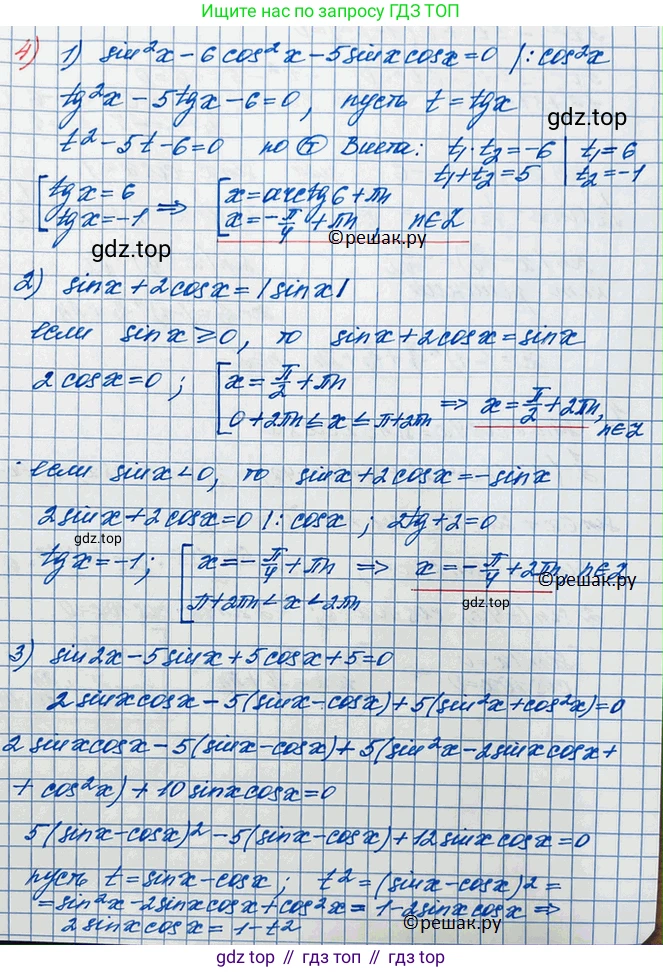 Ищите нас по запросу ГДЗ ТОП
4) 1) sin²x - 6cos²x - 5sinxcosx = 0 |: cos²x
tg²x - 5tgx - 6 = 0, пусть t = tgx
gdz.top
t² - 5t - 6 = 0 по Т Виета: t₁·t₂ = -6 | t₁ = 6
t₁+t₂ = 5 | t₂ = -1
[tgx = 6 => [x = arctg6 + πn
[tgx = -1 [x = -π/4 + πn, n∈Z
gdz.top ©решак.ру
2) sinx + 2cosx = |sinx|
если sinx ≥ 0, то sinx + 2cosx = sinx
2cosx = 0; [x = π/2 + πn
[0 + 2πn ≤ x ≤ π + 2πn => x = π/2 + 2πn, n∈Z
если sinx < 0, то sinx + 2cosx = -sinx
2sinx + 2cosx = 0 |: cosx; 2tg + 2 = 0
gdz.top
tgx = -1; [x = -π/4 + πn => x = -π/4 + 2πn, n∈Z
©решак.ру
[π + 2πn < x < 2πn
gdz.top
3) sin2x - 5sinx + 5cosx + 5 = 0
2sinxcosx - 5(sinx - cosx) + 5(sin²x + cos²x) = 0
2sinxcosx - 5(sinx - cosx) + 5(sin²x - 2sinxcosx +
+ cos²x) + 10sinxcosx = 0
5(sinx - cosx)² - 5(sinx - cosx) + 12sinxcosx = 0
пусть t = sinx - cosx; t² = (sinx - cosx)² =
= sin²x - 2sinxcosx + cos²x = 1 - 2sinxcosx =>
2sinxcosx = 1 - t²
©решак.ру
gdz.top // гдз.топ // gdz.top // гдз.топ